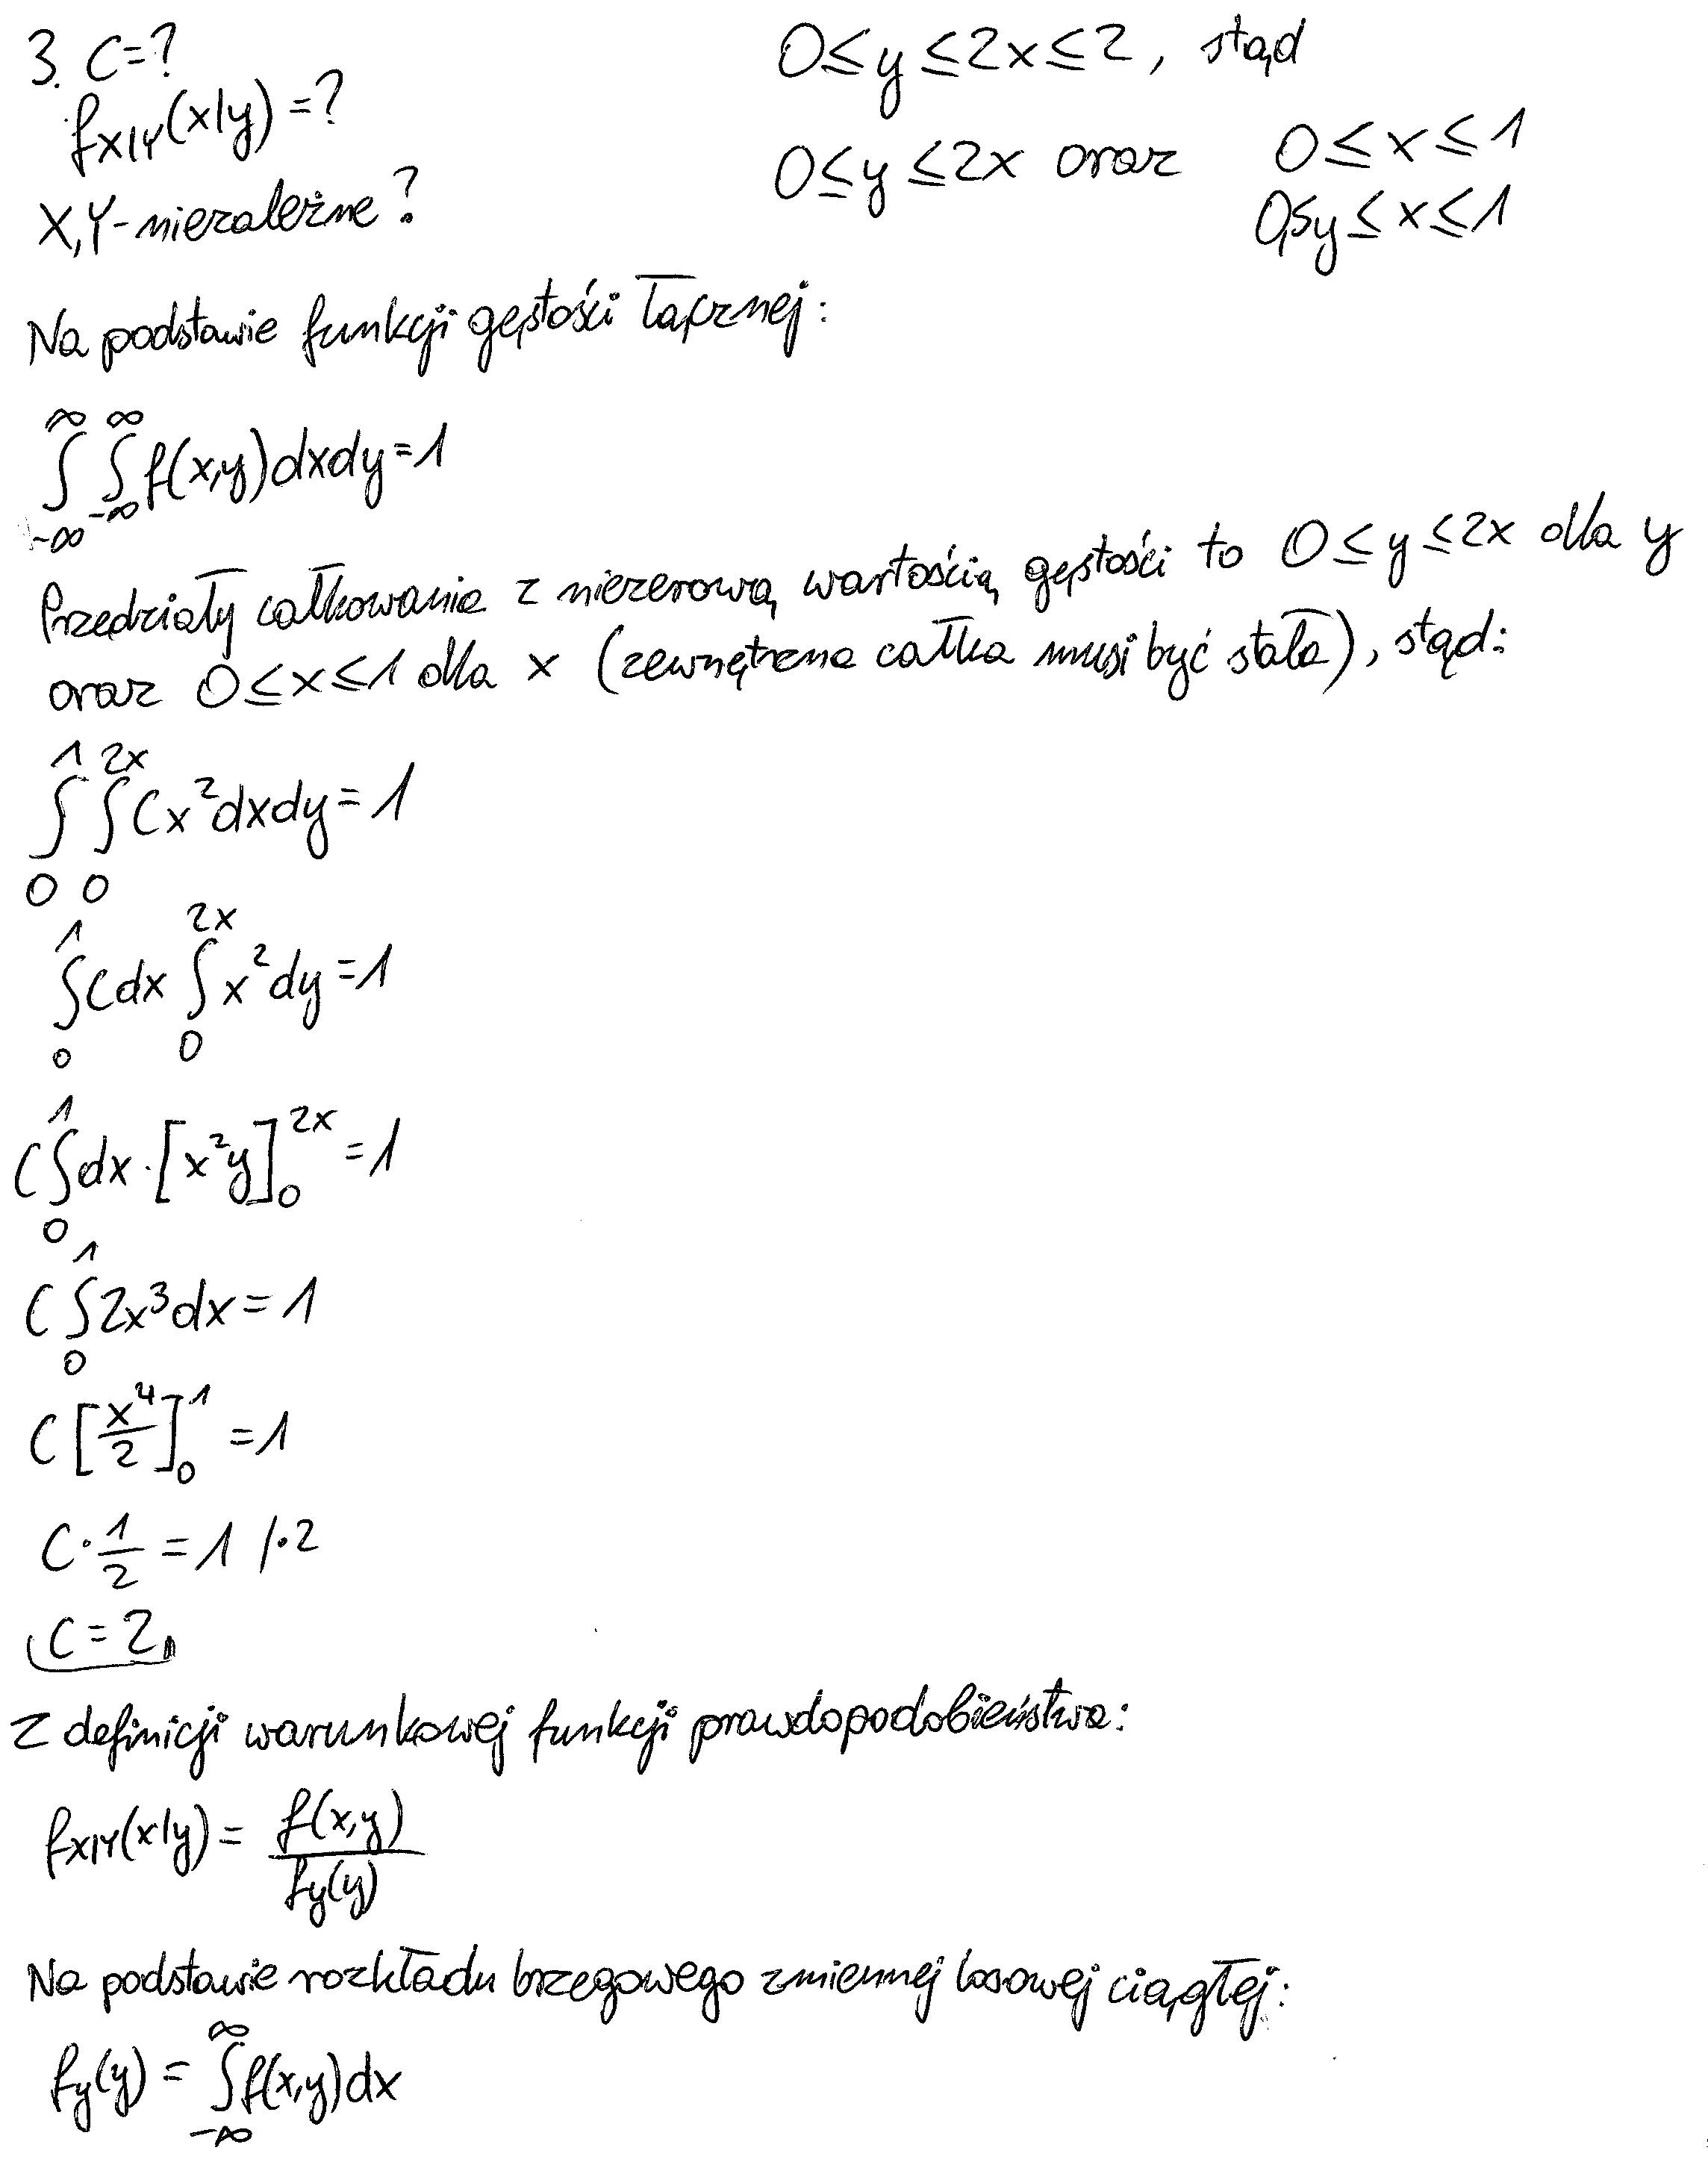 3. C=?
f_{X|Y}(x|y)=?
X,Y-niezależne?
0≤y≤2x≤2, stąd
0≤y≤2x oraz 0≤x≤1
0,5y≤x≤1
Na podstawie funkcji gęstości łącznej:
∫_{-∞}^{∞} ∫_{-∞}^{∞} f(x,y)dxdy=1
Przedziały całkowania z niezerową wartością gęstości to 0≤y≤2x dla y
oraz 0≤x≤1 dla x (zewnętrzna całka musi być stała), stąd:
∫_0^1 ∫_0^{2x} Cx²dxdy=1
∫_0^1 Cdx ∫_0^{2x} x²dy=1
C∫_0^1 dx·[x²y]_0^{2x}=1
C∫_0^1 2x³dx=1
C[x⁴/2]_0^1=1
C·1/2=1 /·2
C=2
Z definicji warunkowej funkcji prawdopodobieństwa:
f_{X|Y}(x|y)= f(x,y)/f_y(y)
Na podstawie rozkładu brzegowego zmiennej losowej ciągłej:
f_y(y)= ∫_{-∞}^{∞} f(x,y)dx